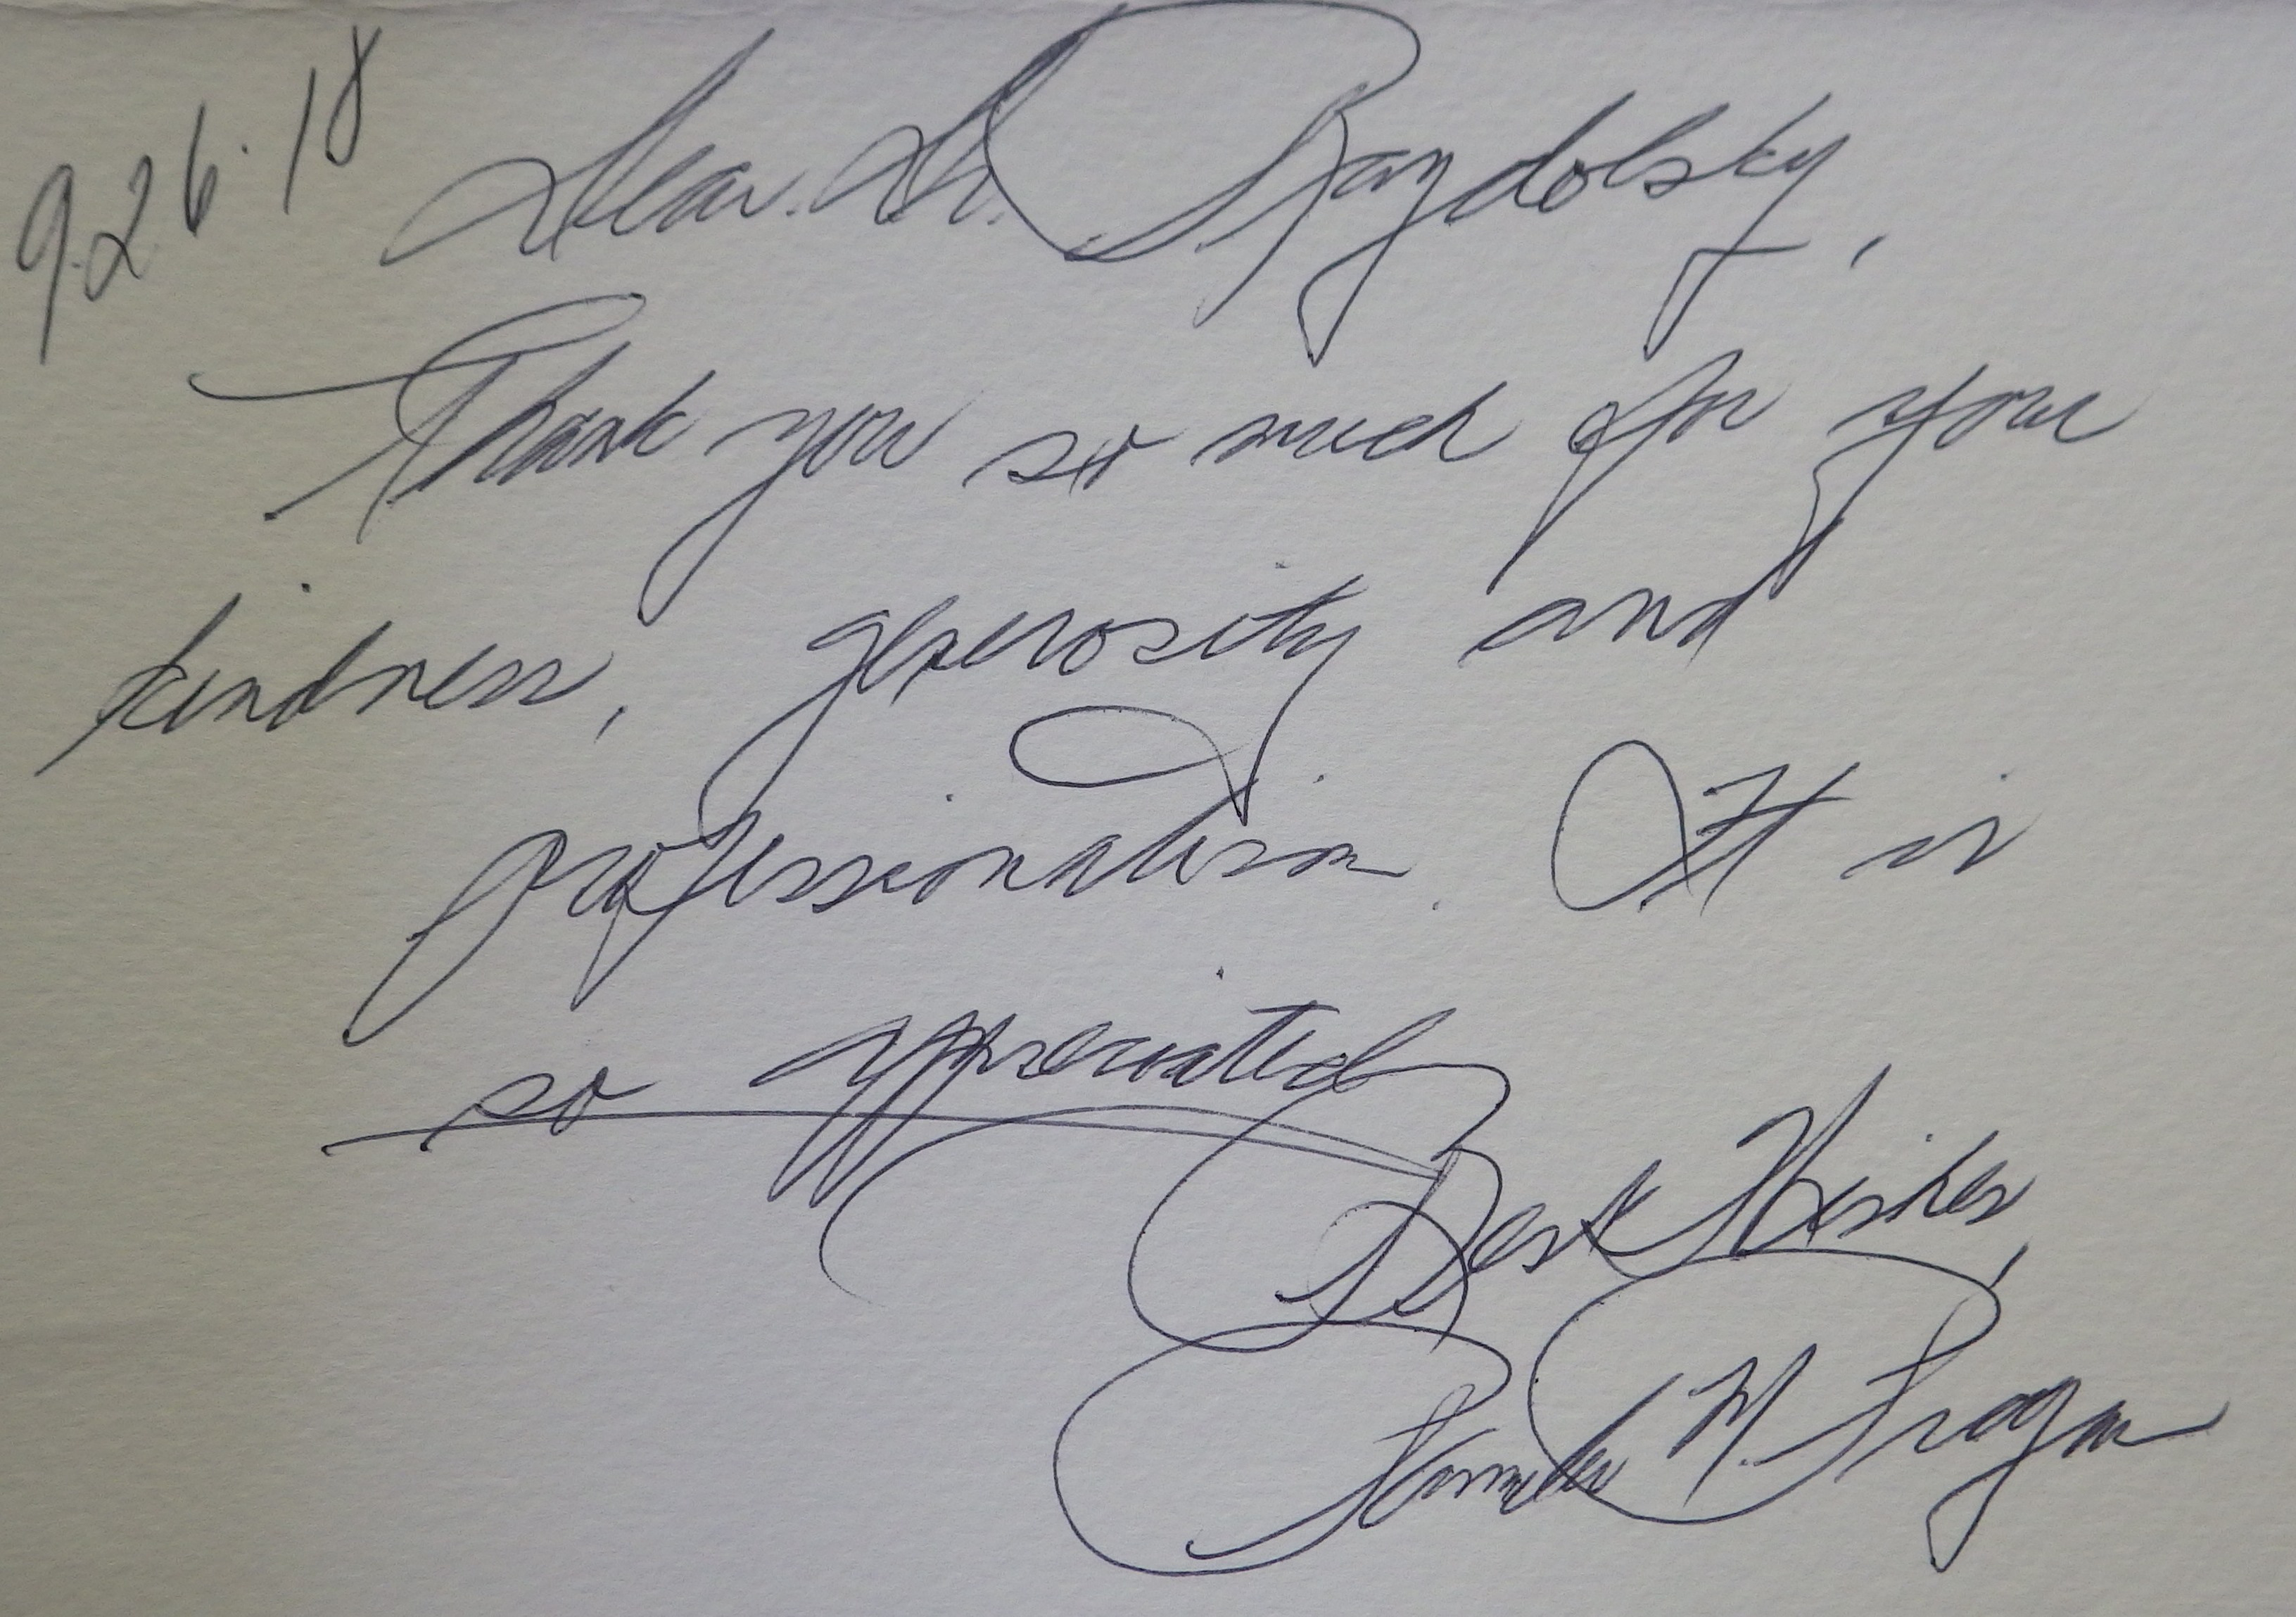 9.26.18
Dear Dr. Razdolsky,
Thank you so much for your
kindness, generosity and
professionalism. It is
so appreciated
Best Wishes,
Pamela M.